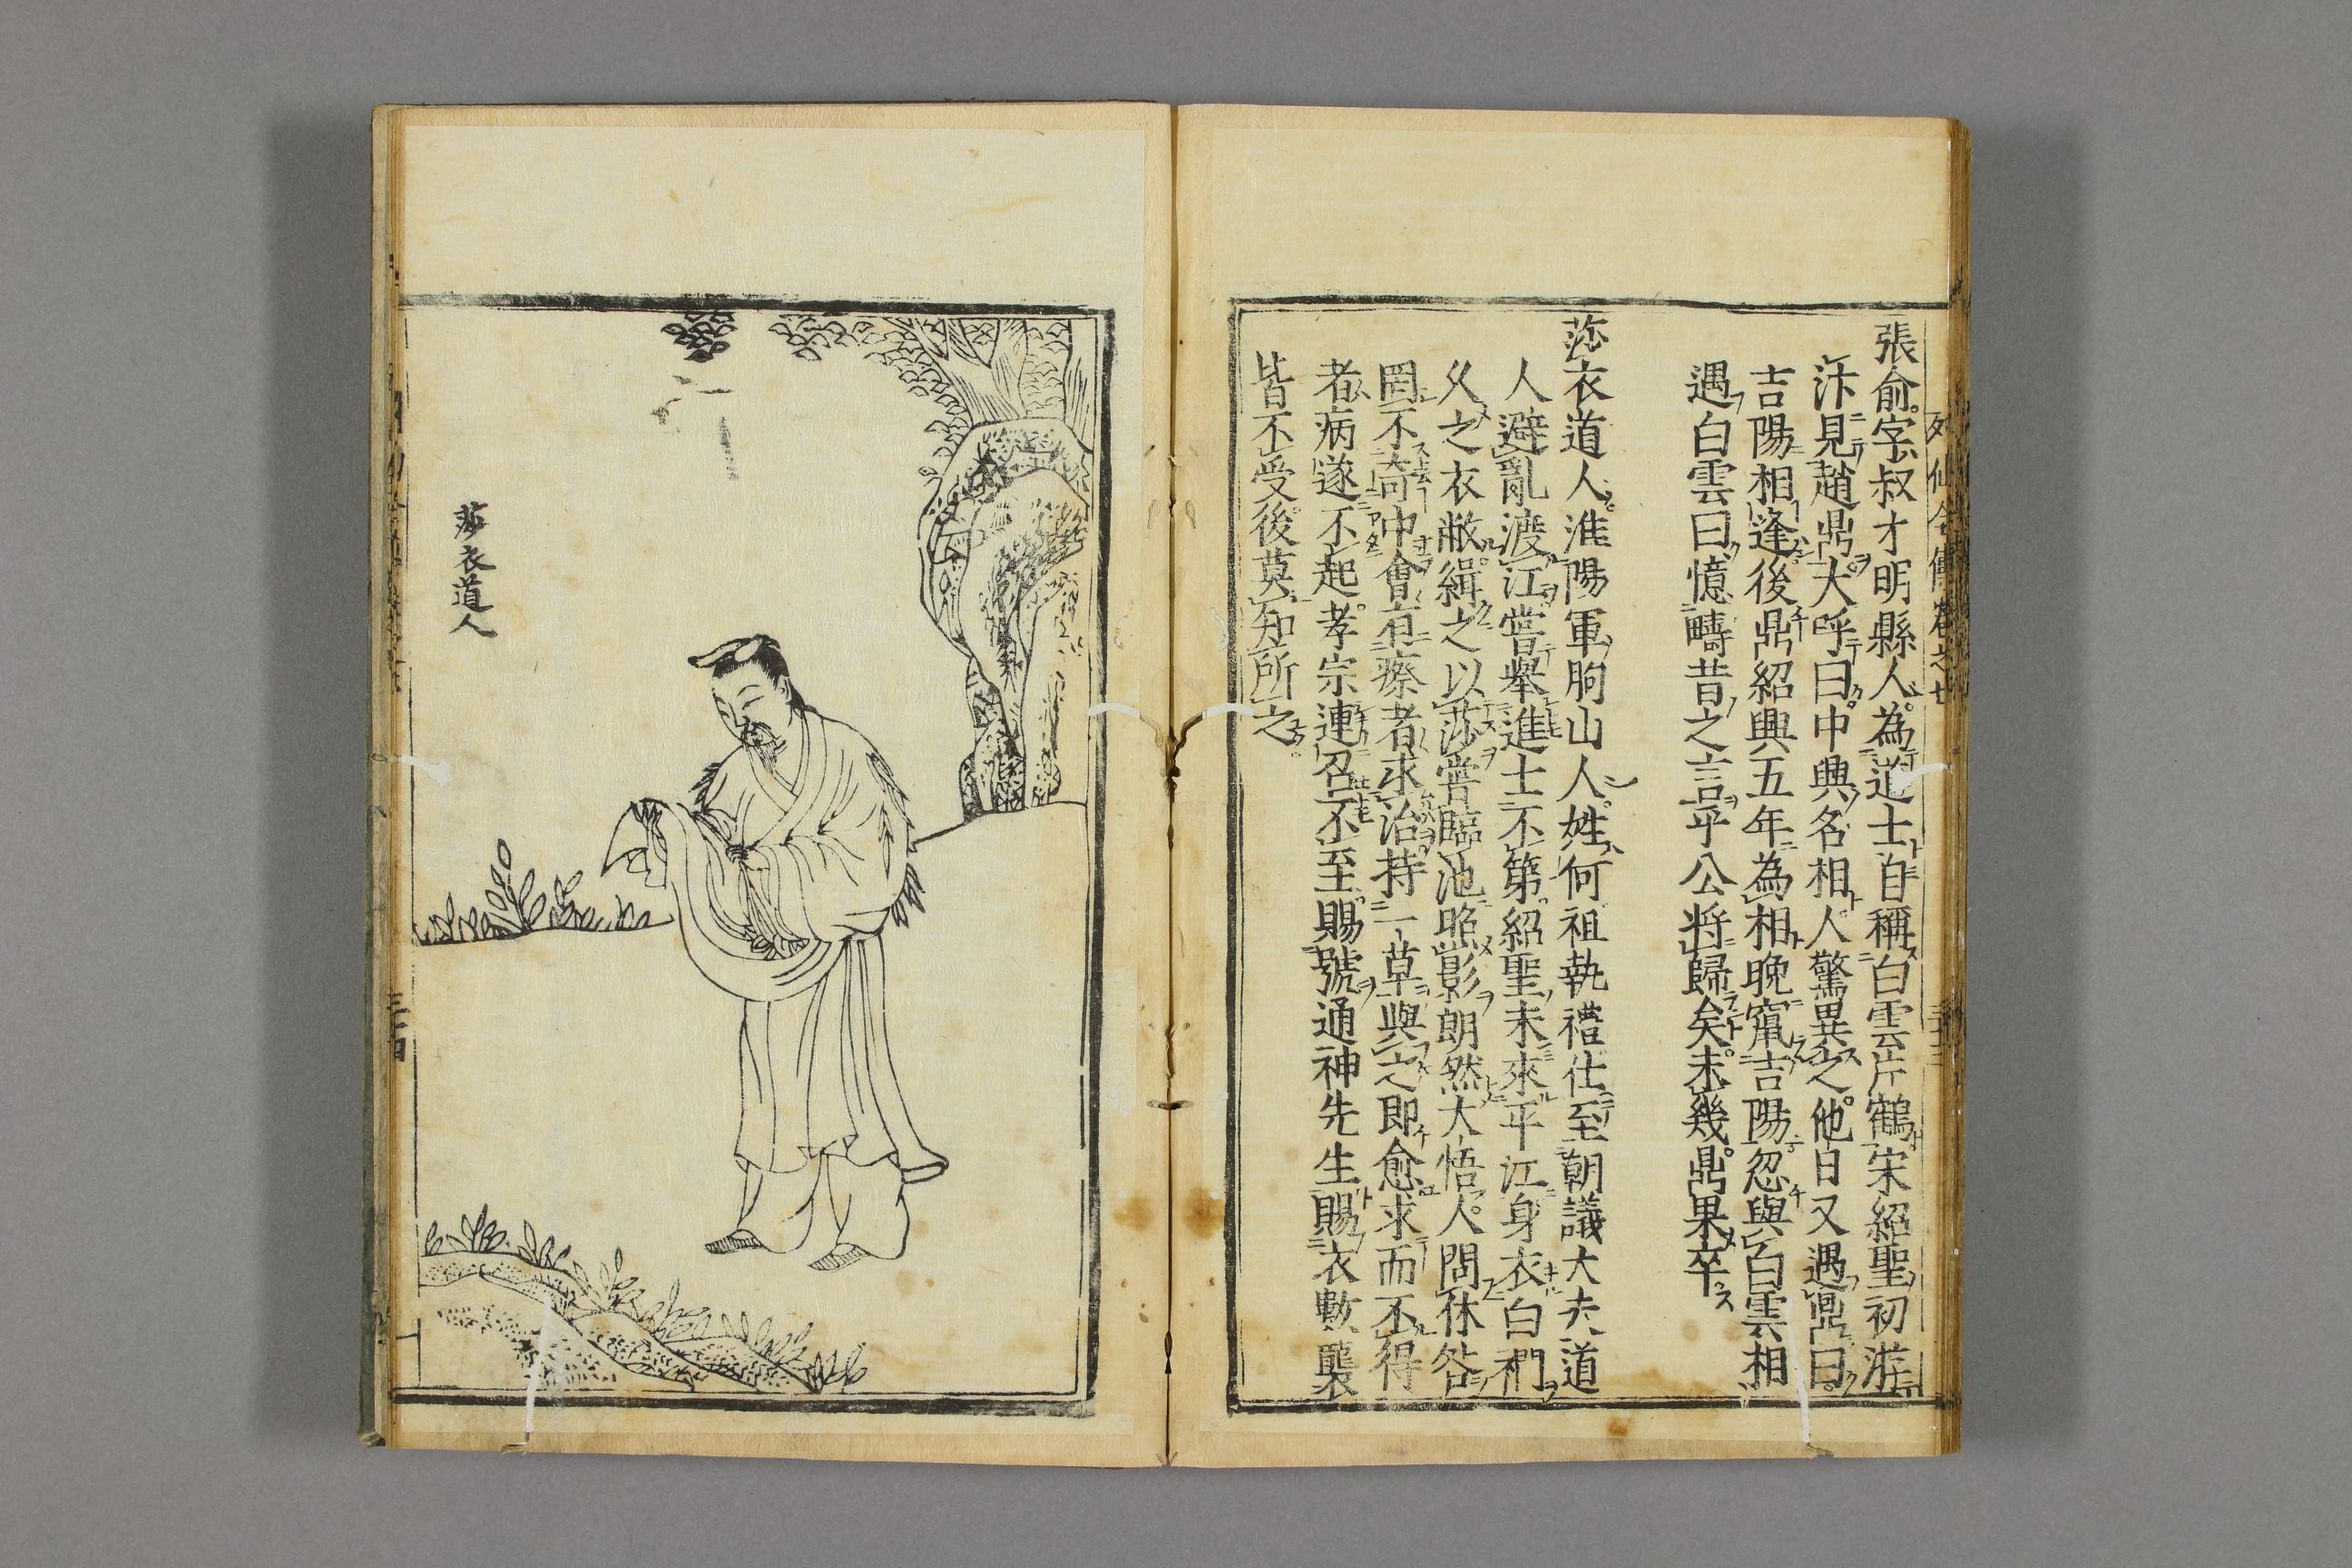 張俞字叔才明縣人為道士自稱白雲片鶴宋紹聖初游
汴見趙鼎大呼曰中興名相人驚異之他日又遇鼎曰
吉陽相逢後鼎紹興五年為相晚竄吉陽忽與白雲相
遇白雲曰憶疇昔之言乎公将歸矣未幾鼎果卒
莎衣道人淮陽軍朐山人姓何祖執禮仕至朝議大夫道
人避亂渡江嘗舉進士不第紹聖末來平江身衣白襴
久之衣敝緝之以莎嘗臨池照影朗然大悟人問休咎
罔不奇中會有瘵者求治持一草與之即愈求而不得
者病遂不起孝宗連召不至賜號通神先生賜衣數襲
皆不受後莫知所之
莎衣道人